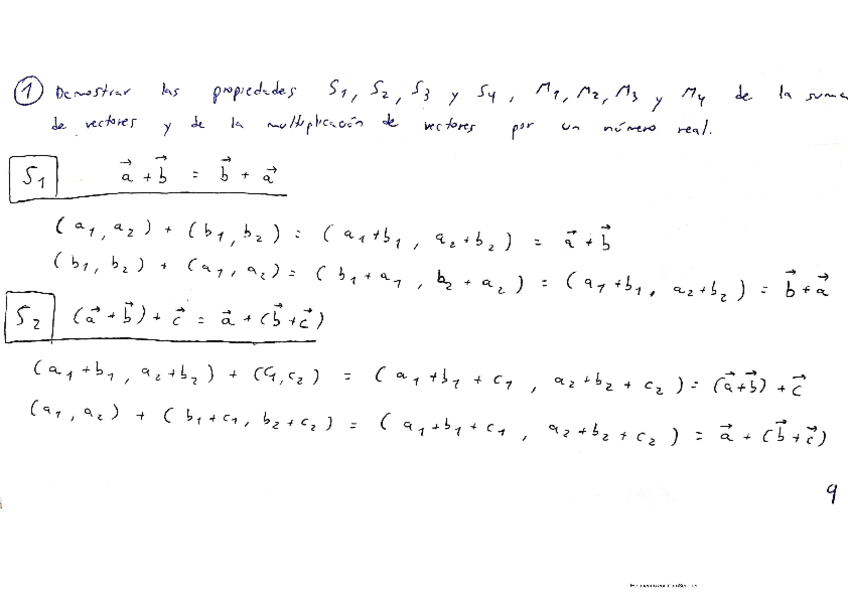 ① Demostrar las propiedades S₁, S₂, S₃ y S₄, M₁, M₂, M₃ y M₄ de la suma
de vectores y de la multiplicación de vectores por un número real.
S₁ a⃗ + b⃗ = b⃗ + a⃗
(a₁, a₂) + (b₁, b₂) = (a₁+b₁, a₂+b₂) = a⃗ + b⃗
(b₁, b₂) + (a₁, a₂) = (b₁+a₁, b₂+a₂) = (a₁+b₁, a₂+b₂) = b⃗ + a⃗
S₂ (a⃗ + b⃗) + c⃗ = a⃗ + (b⃗ + c⃗)
(a₁+b₁, a₂+b₂) + (c₁, c₂) = (a₁+b₁+c₁, a₂+b₂+c₂) = (a⃗+b⃗) + c⃗
(a₁, a₂) + (b₁+c₁, b₂+c₂) = (a₁+b₁+c₁, a₂+b₂+c₂) = a⃗ + (b⃗+c⃗)
9